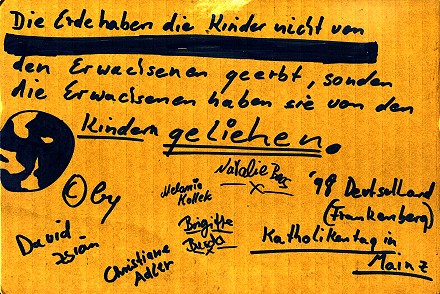 Die Erde haben die Kinder nicht von
den Erwachsenen geerbt, sonden
die Erwachsenen haben sie von den
Kindern geliehen.
© by
David
Christiane
Adler
Melanie
Natalie
Brigitte
'98 Deutschland
(Frankenberg)
Katholikentag in
Mainz